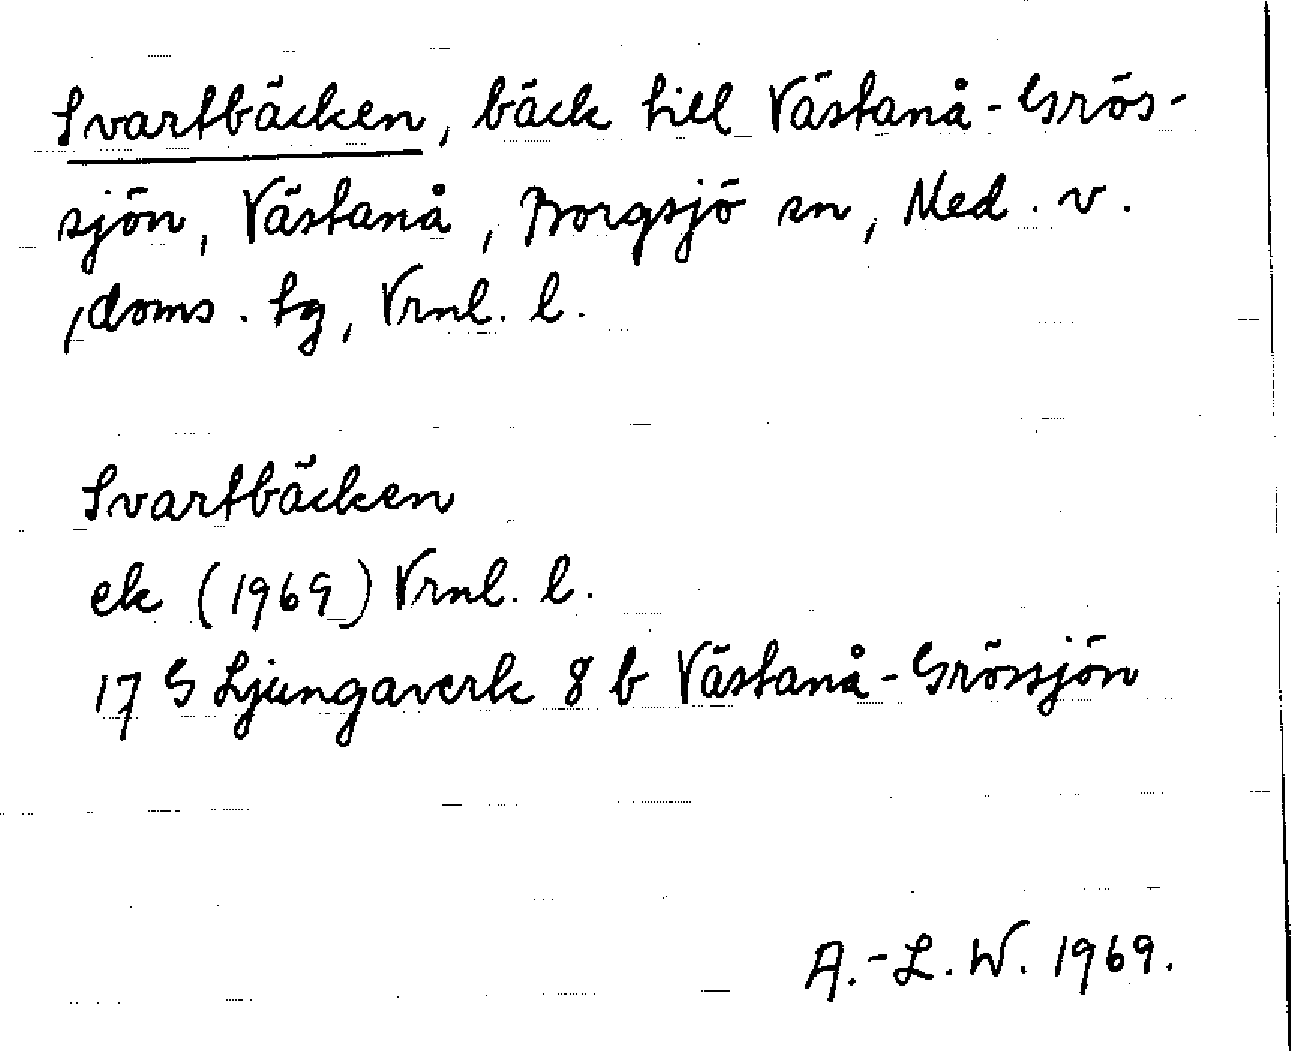 Svartbäcken, bäck till Västanå-Grös-
sjön, Västanå, Borgsjö sn, Med. v.
, doms. tg, Vrnl. l.
Svartbäcken
ek (1969) Vrnl. l.
17 G Ljungaverk 8 b Västanå-Grössjön
A.-L. W. 1969.